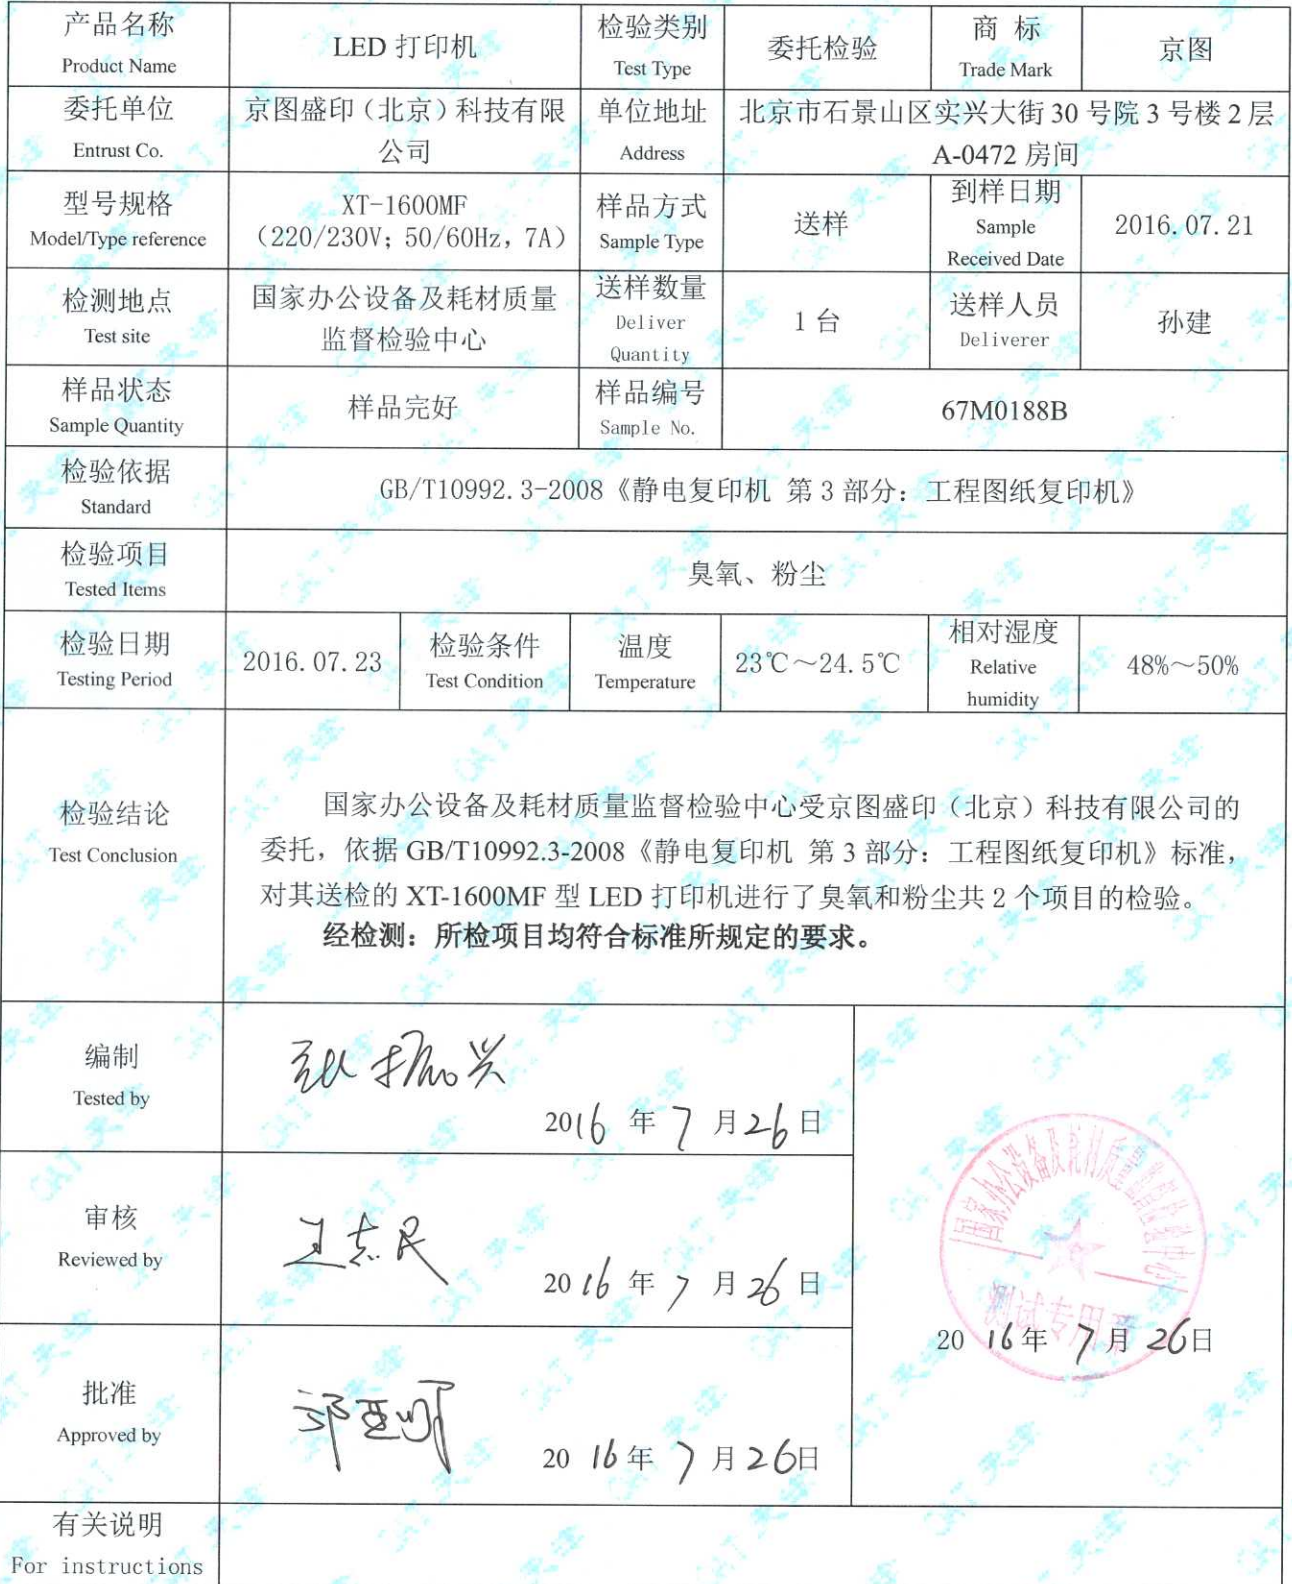 产品名称
Product Name
LED 打印机
检验类别
Test Type
委托检验
商 标
Trade Mark
京图
委托单位
Entrust Co.
京图盛印（北京）科技有限
公司
单位地址
Address
北京市石景山区实兴大街 30 号院 3 号楼 2 层
A-0472 房间
型号规格
Model/Type reference
XT-1600MF
（220/230V; 50/60Hz, 7A）
样品方式
Sample Type
送样
到样日期
Sample
Received Date
2016.07.21
检测地点
Test site
国家办公设备及耗材质量
监督检验中心
送样数量
Deliver
Quantity
1 台
送样人员
Deliverer
孙建
样品状态
Sample Quantity
样品完好
样品编号
Sample No.
67M0188B
检验依据
Standard
GB/T10992.3-2008《静电复印机 第 3 部分：工程图纸复印机》
检验项目
Tested Items
臭氧、粉尘
检验日期
Testing Period
2016.07.23
检验条件
Test Condition
温度
Temperature
23℃～24.5℃
相对湿度
Relative
humidity
48%～50%
检验结论
Test Conclusion
国家办公设备及耗材质量监督检验中心受京图盛印（北京）科技有限公司的
委托，依据 GB/T10992.3-2008《静电复印机 第 3 部分：工程图纸复印机》标准，
对其送检的 XT-1600MF 型 LED 打印机进行了臭氧和粉尘共 2 个项目的检验。
经检测：所检项目均符合标准所规定的要求。
编制
Tested by
张振兴
2016 年 7 月 26 日
审核
Reviewed by
王志民
2016 年 7 月 26 日
国家办公设备及耗材质量监督检验中心
测试专用章
2016 年 7 月 26 日
批准
Approved by
2016 年 7 月 26 日
有关说明
For instructions